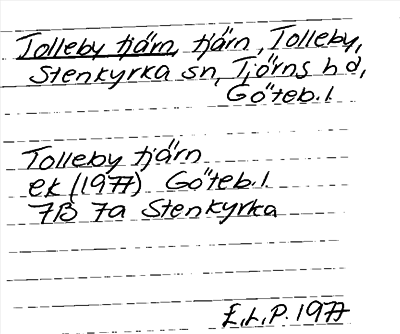 Tolleby tjärn, tjärn, Tolleby,
Stenkyrka sn, Tjörns hd,
Göteb.l.
Tolleby tjärn
ek (1977) Göteb.l.
7B 7a Stenkyrka
E.L.P. 1977